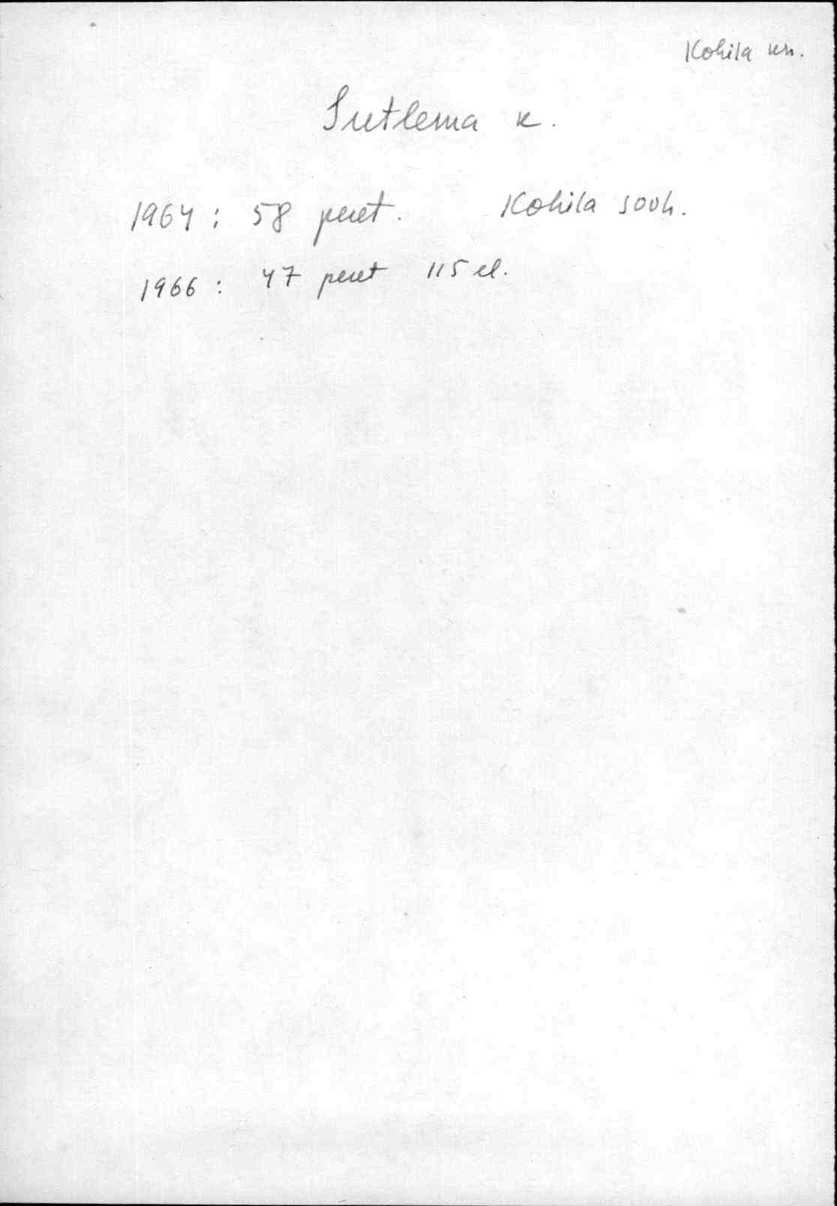 Kohila kn.
Sutlema k.
1964 : 58 peret. Kohila sovh.
1966 : 47 peret 115 el.